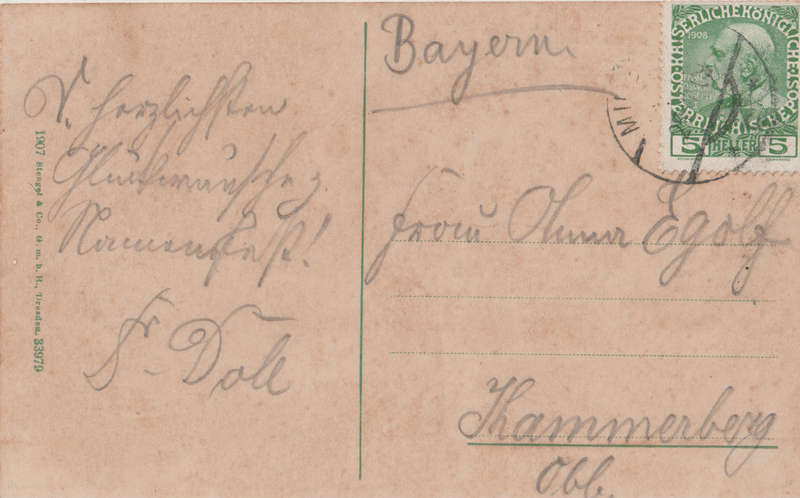 V. herzlichsten
Glückwunsch z.
Namensfest!
Fr. Doll
1907 Stengel & Co., G. m. b. H., Dresden. 33979
Bayern.
KAISERLICHEKÖNIGLICHE
ÖSTERREICHISCHE POST
1908
5 HELLER 5
Frau Anna Egolf
Kammerberg
Obb.